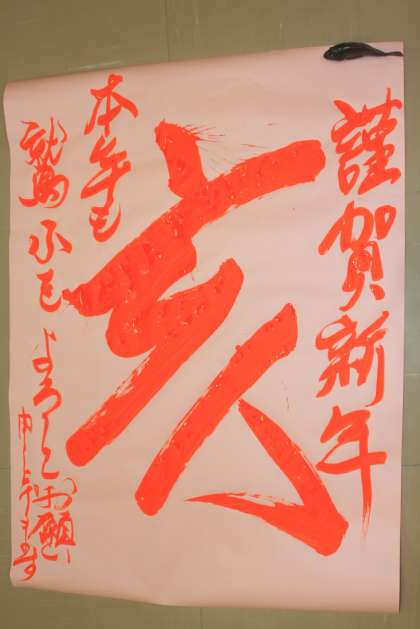 謹賀新年
亥
本年も
鷲ふをよろしくお願い
申し上げます